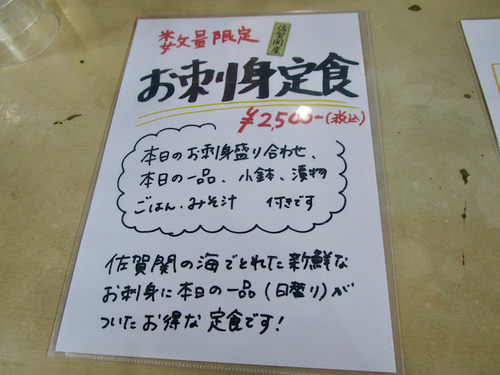 数量限定
佐賀関産
お刺身定食
¥2,500-(税込)
本日のお刺身盛り合わせ、
本日の一品、小鉢、漬物
ごはん、みそ汁 付きです
佐賀関の海でとれた新鮮な
お刺身に本日の一品(日替り)が
ついたお得な定食です!